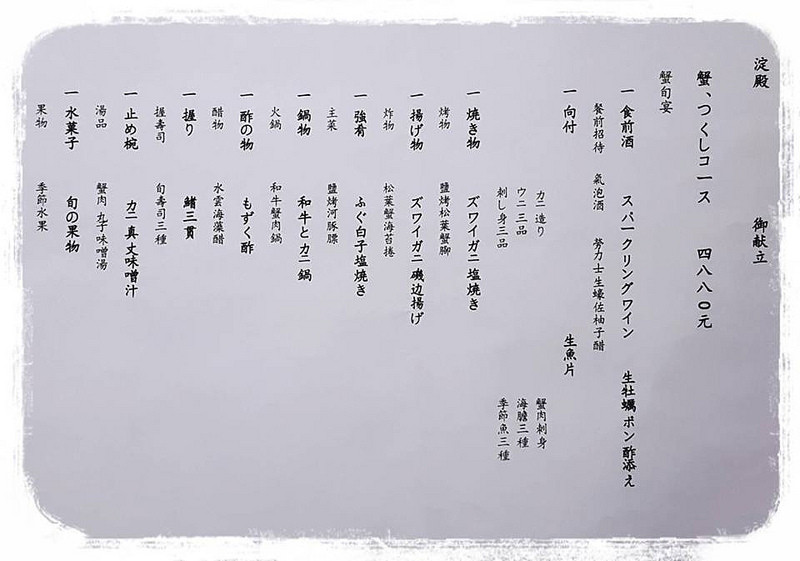 淀殿 御献立
蟹、つくしコース 四八八〇元
蟹旬宴
一 食前酒 スパークリングワイン 生牡蠣ポン酢添え
餐前招待 氣泡酒 努力士生蠔佐柚子醋
一 向付 生魚片
カニ造り 蟹肉刺身
ウニ三品 海膽三種
刺し身三品 季節魚三種
一 焼き物 ズワイガニ塩焼き
烤物 鹽烤松葉蟹腳
一 揚げ物 ズワイガニ磯辺揚げ
炸物 松葉蟹海苔捲
一 強肴 ふぐ白子塩焼き
主菜 鹽烤河豚膘
一 鍋物 和牛とカニ鍋
火鍋 和牛蟹肉鍋
一 酢の物 もずく酢
醋物 水雲海藻醋
一 握り 鮨三貫
握壽司 旬壽司三種
一 止め椀 カニ真丈味噌汁
湯品 蟹肉丸子味噌湯
一 水菓子 旬の果物
果物 季節水果